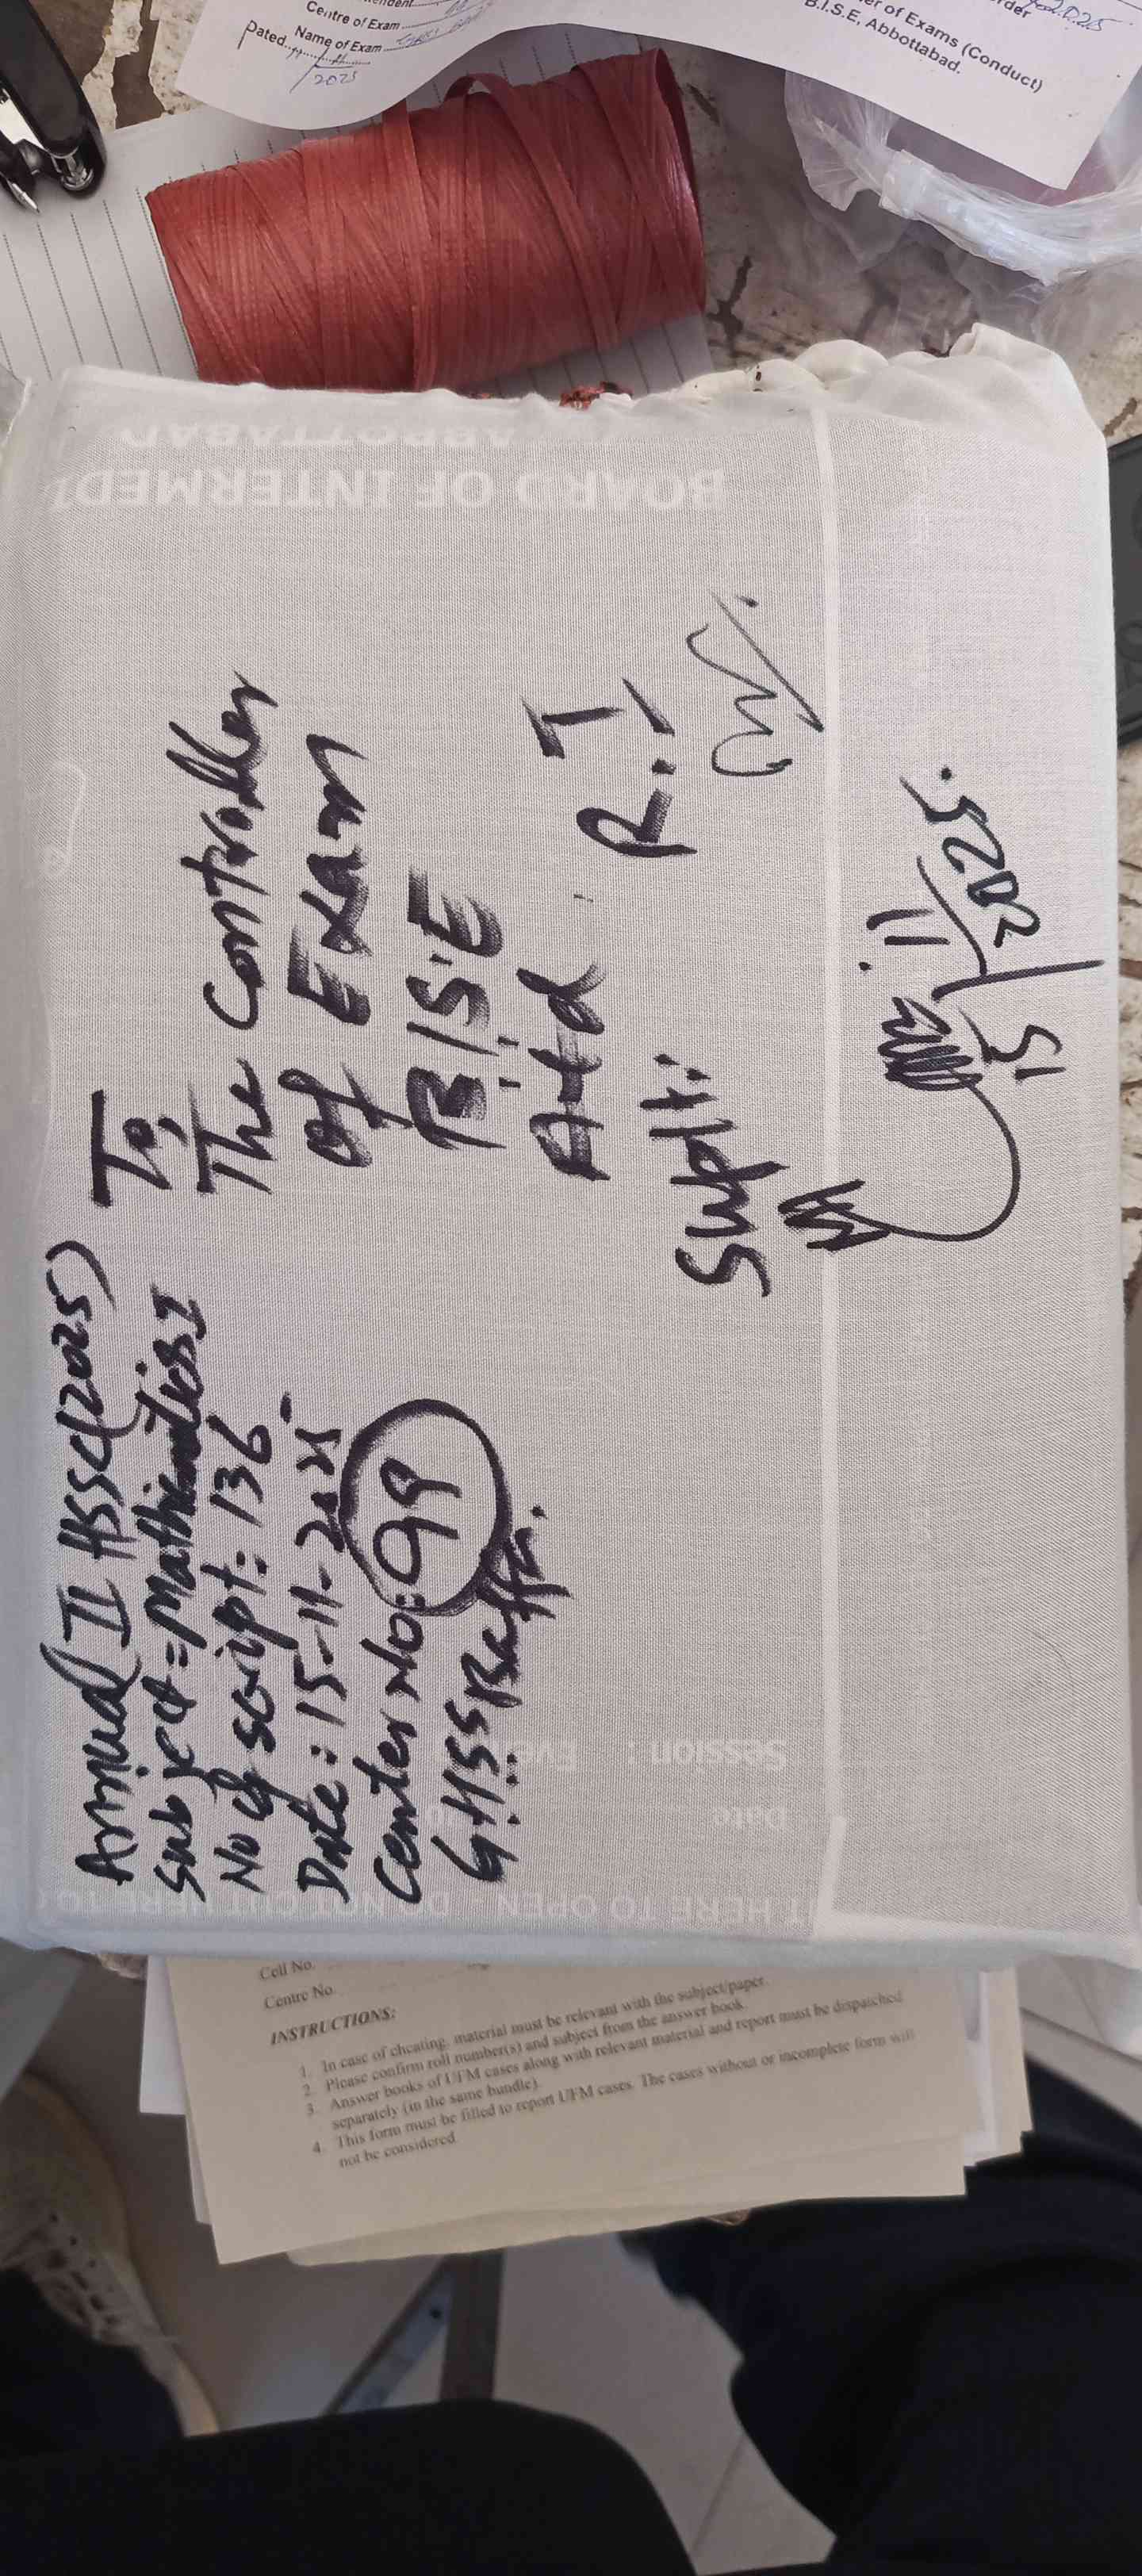 Centre of Exam
Name of Exam
Dated
/2025
2025
of Exams (Conduct)
B.I.S.E, Abbottabad.
ABBOTTABAD
BOARD OF INTERMEDI
Annual II HSSC(2025)
Subject = Mathematics I
No of script: 136
Date: 15-11-2025
Center No: 99
GHSS Baffa.
To,
The Controller
of Exam
B.I.S.E
Atd
Supt:
R.I
15/11/2025.
Session :
Date
T HERE TO OPEN DO NOT CUT HERE TO
Cell No.
Centre No.
INSTRUCTIONS:
1. In case of cheating, material must be relevant with the subject/paper.
2. Please confirm roll number(s) and subject from the answer book.
3. Answer books of UFM cases along with relevant material and report must be dispatched
separately (in the same bundle).
4. This form must be filled to report UFM cases. The cases without or incomplete form will
not be considered.